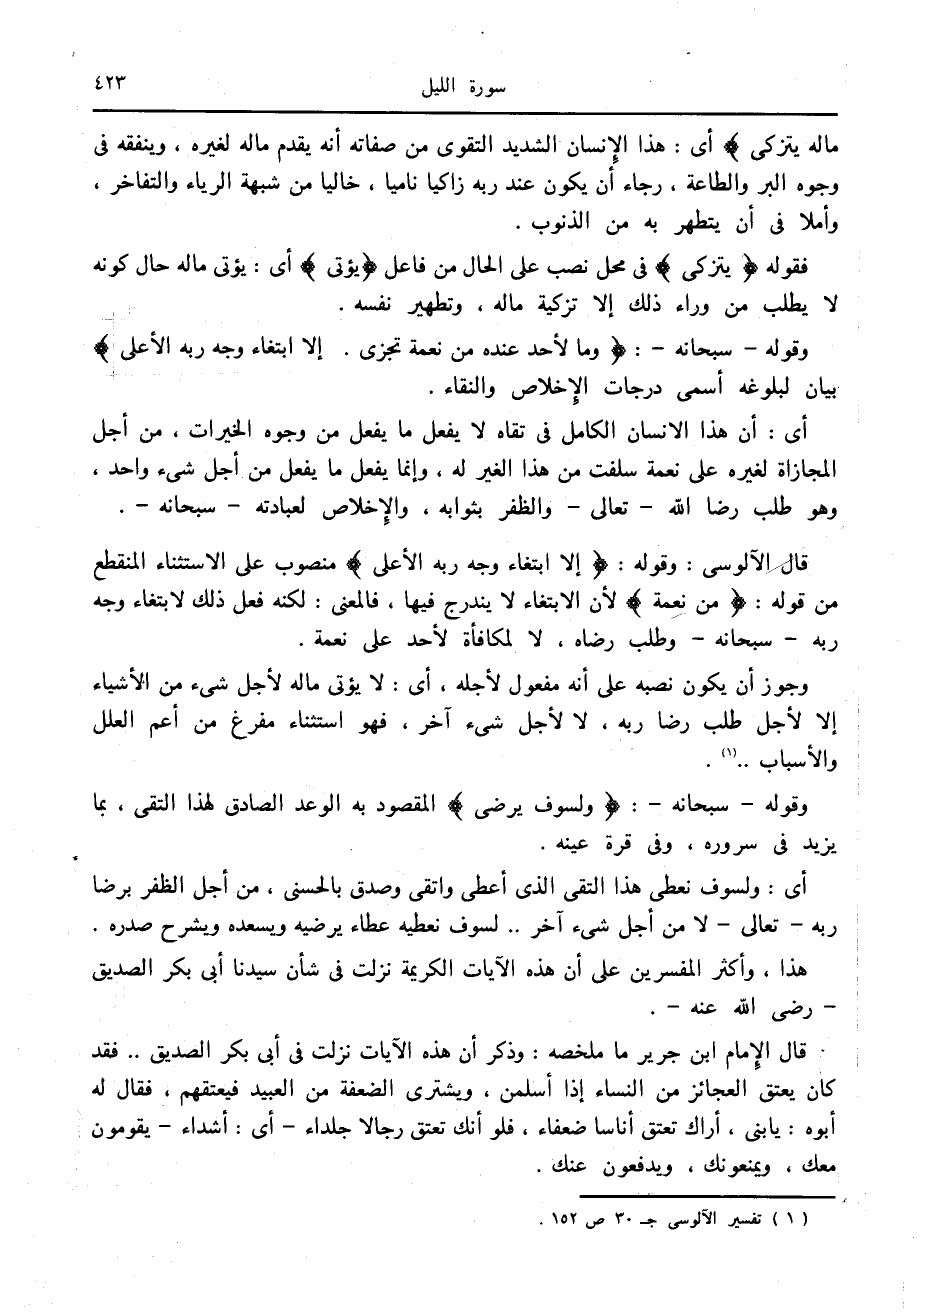 سورة الليل
٤٢٣
ماله يتزكى ﴾ أى : هذا الإنسان الشديد التقوى من صفاته أنه يقدم ماله لغيره ، وينفقه فى
وجوه البر والطاعة ، رجاء أن يكون عند ربه زاكيا ناميا ، خاليا من شبهة الرياء والتفاخر ،
وأملا فى أن يتطهر به من الذنوب .
فقوله ﴿ يتزكى ﴾ فى محل نصب على الحال من فاعل ﴿يؤتى ﴾ أى : يؤتى ماله حال كونه
لا يطلب من وراء ذلك إلا تزكية ماله ، وتطهير نفسه .
وقوله - سبحانه - : ﴿ وما لأحد عنده من نعمة تجزى . إلا ابتغاء وجه ربه الأعلى ﴾
بيان لبلوغه أسمى درجات الإخلاص والنقاء .
أى : أن هذا الانسان الكامل فى تقاه لا يفعل ما يفعل من وجوه الخيرات ، من أجل
المجازاة لغيره على نعمة سلفت من هذا الغير له ، وإنما يفعل ما يفعل من أجل شىء واحد ،
وهو طلب رضا الله - تعالى - والظفر بثوابه ، والإخلاص لعبادته - سبحانه - .
قال الآلوسى : وقوله : ﴿ إلا ابتغاء وجه ربه الأعلى ﴾ منصوب على الاستثناء المنقطع
من قوله : ﴿ من نعمة ﴾ لأن الابتغاء لا يندرج فيها ، فالمعنى : لكنه فعل ذلك لابتغاء وجه
ربه - سبحانه - وطلب رضاه ، لا لمكافأة لأحد على نعمة .
وجوز أن يكون نصبه على أنه مفعول لأجله ، أى : لا يؤتى ماله لأجل شىء من الأشياء
إلا لأجل طلب رضا ربه ، لا لأجل شىء آخر ، فهو استثناء مفرغ من أعم العلل
والأسباب ..(١) .
وقوله - سبحانه - : ﴿ ولسوف يرضى ﴾ المقصود به الوعد الصادق لهذا التقى ، بما
يزيد فى سروره ، وفى قرة عينه .
أى : ولسوف نعطى هذا التقى الذى أعطى واتقى وصدق بالحسنى ، من أجل الظفر برضا
ربه - تعالى - لا من أجل شىء آخر .. لسوف نعطيه عطاء يرضيه ويسعده ويشرح صدره .
هذا ، وأكثر المفسرين على أن هذه الآيات الكريمة نزلت فى شأن سيدنا أبى بكر الصديق
- رضى الله عنه - .
قال الإمام ابن جرير ما ملخصه : وذكر أن هذه الآيات نزلت فى أبى بكر الصديق .. فقد
كان يعتق العجائز من النساء إذا أسلمن ، ويشترى الضعفة من العبيد فيعتقهم ، فقال له
أبوه : يابنى ، أراك تعتق أناسا ضعفاء ، فلو أنك تعتق رجالا جلداء - أى : أشداء - يقومون
معك ، ويمنعونك ، ويدفعون عنك .
( ١ ) تفسير الآلوسى جـ ٣٠ ص ١٥٢ .